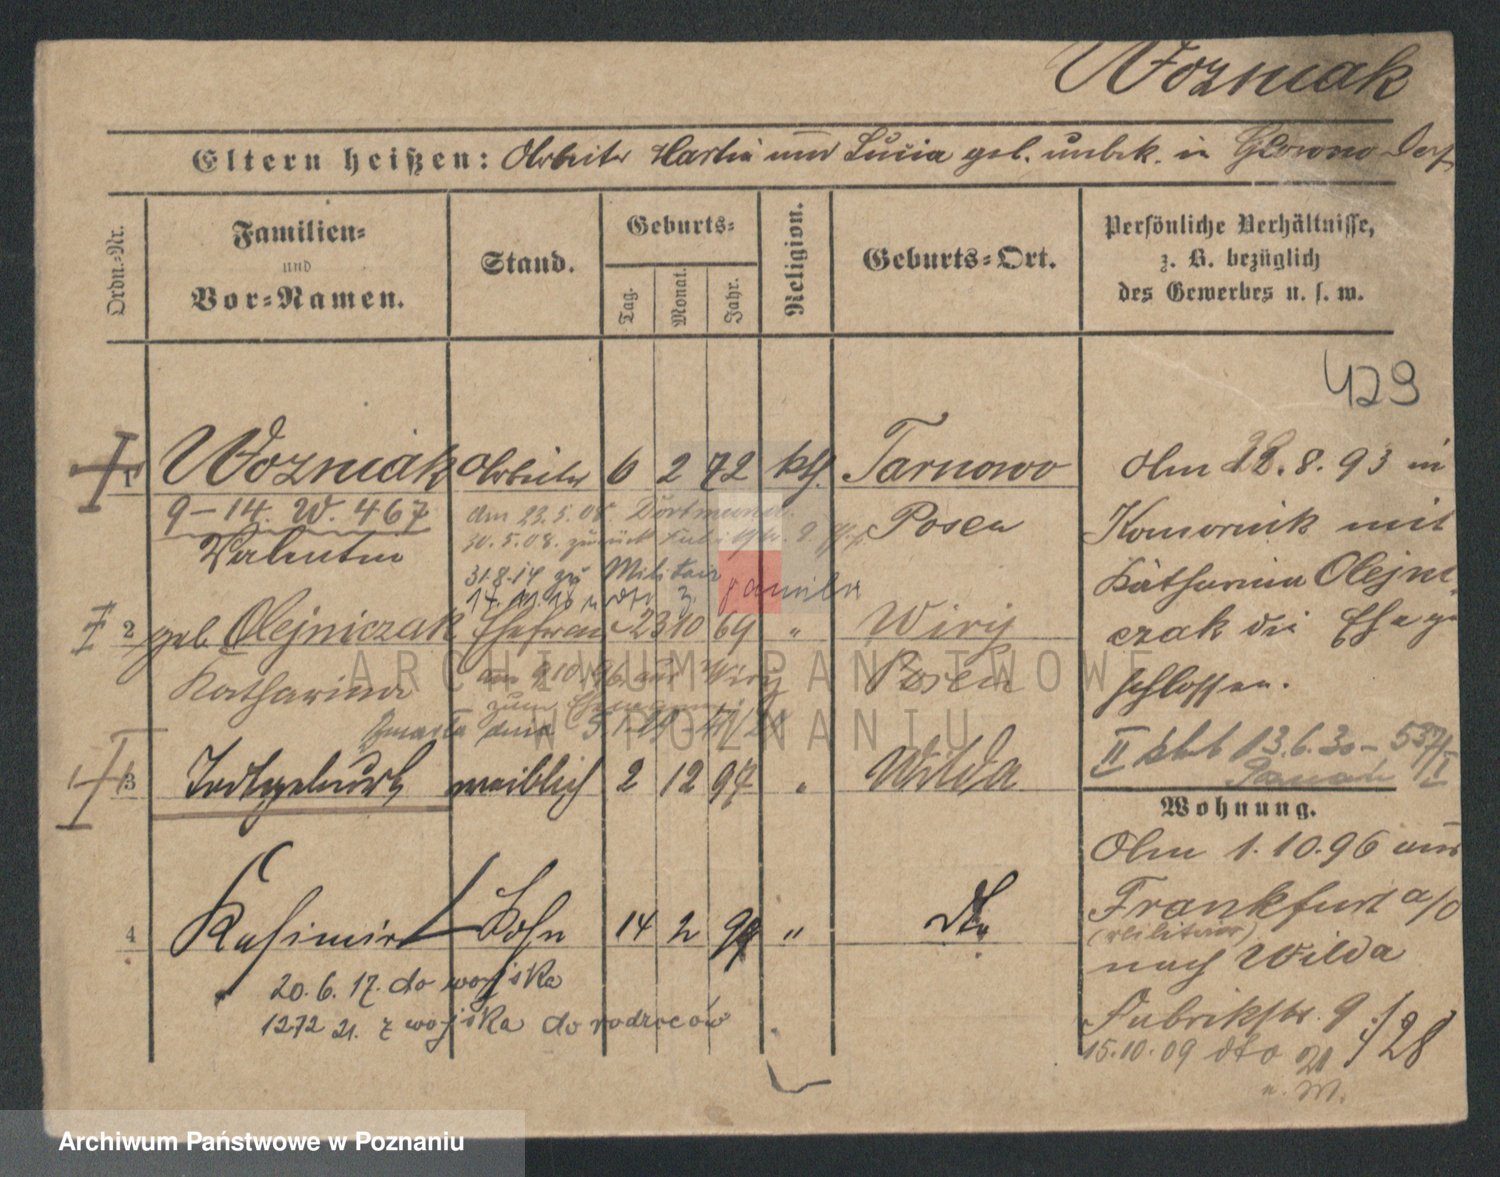 Wozniak
Eltern heißen: Arbeiter Martin und Lucia geb. unbek. in Glowno Dorf
Ordn.-Nr.
Familien-
und
Vor-Namen.
Stand.
Geburts-
Tag.
Monat.
Jahr.
Religion.
Geburts-Ort.
Persönliche Verhältnisse,
z. B. bezüglich
des Gewerbes u. s. w.
429
1 Wozniak Arbeiter 6 2 72 kth. Tarnowo
9-14. W. 467
Valentin
am 23.5.08 Dortmund.
30.5.08. zurück
Posen
31.8.14 zu Militair
z. Familie
2 geb. Olejniczak Ehefrau 23 10 69 " Wirÿ
Katharina
am 9.10.96 aus Wiry
Posen
zmarła dnia
3 Todtgeburt weiblich 2 12 97 " Wilda
4 Kasimir Sohn 14 2 99 " dto
20.6.17. do wojska
z wojska do rodziców
Am 22.8.93 in
Komornik mit
Katharina Olejni-
czak die Ehe ge
schlossen.
II 13.6.30 -
Wohnung.
Am 1.10.96 aus
Frankfurt a/O
(Militair)
nach Wilda
Fabrikstr. 9
28
15.10.09 dto 21
ARCHIWUM PAŃSTWOWE
W POZNANIU
Archiwum Państwowe w Poznaniu